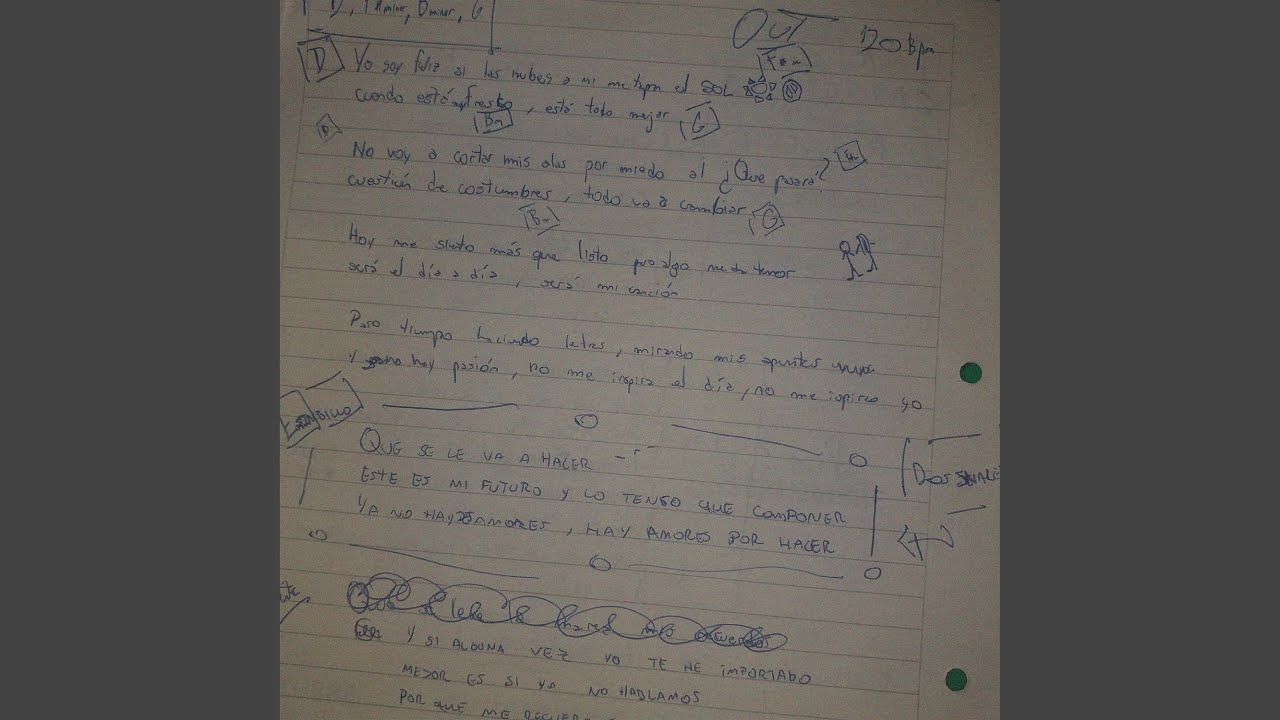 D, F#minor, Bminor, G
OUT
120 Bpm
D Yo soy feliz si las nubes a mi me tapan el SOL
F#m
cuando está fresko, está todo mejor G
Bm
D
No voy a cortar mis alas por miedo al ¿Que pasará?
cuestión de costumbres, todo va a cambiar G
Bm
Hoy me sieto más que listo algo me da temor
será el día a día, será mi canción
Paso tiempo haciendo letras, mirando mis apuntes
Y no hay pasión, no me inspira el día, no me inspiro yo
ESTRIBILLO
QUE SE LE VA A HACER
ESTE ES MI FUTURO Y LO TENGO QUE COMPONER
YA NO HAY DESAMORES, HAY AMORES POR HACER
Y SI ALGUNA VEZ YO TE HE IMPORTADO
MEJOR ES SI YA NO HABLAMOS
POR QUE ME